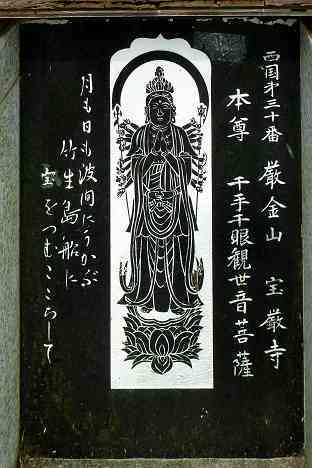 西国第三十番 厳金山 宝厳寺
本尊 千手千眼觀世音菩薩
月も日も波間にうかぶ
竹生島船に
宝をつむこゝちして